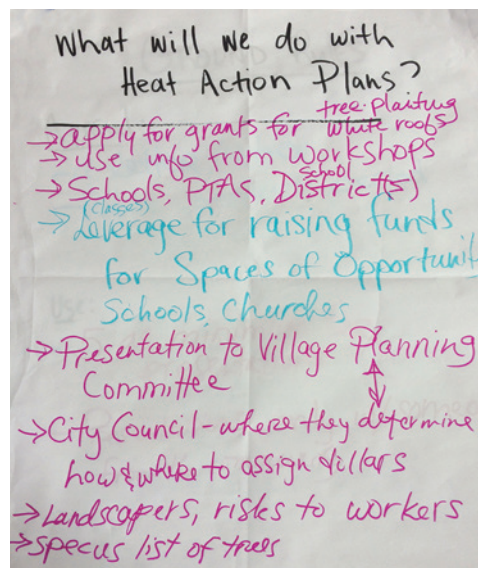 What will we do with
Heat Action Plans?
tree planting
→ apply for grants for white roofs
→ use info from workshops
→ Schools, PTAs, School District(s)
(classes)
→ Leverage for raising funds
for Spaces of Opportunit
Schools, Churches
→ Presentation to Village Planning
Committee
→ City Council - where they determine
how & where to assign dillars
→ Landscapers, risks to workers
→ specus list of trees